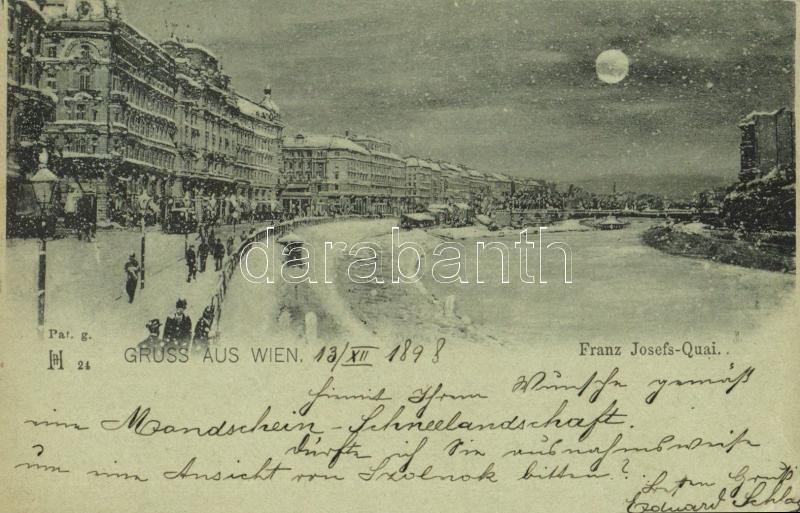 darabanth
Pat. g.
24
GRUSS AUS WIEN. 13/XII 1898
Franz Josefs-Quai.
hiemit Ihrem Wunsche gemäß
eine Mondschein-Schneelandschaft.
dürfte ich Sie ausnahmsweise
um eine Ansicht von Szolnok bitten?
Besten Gruß
Eduard Schla